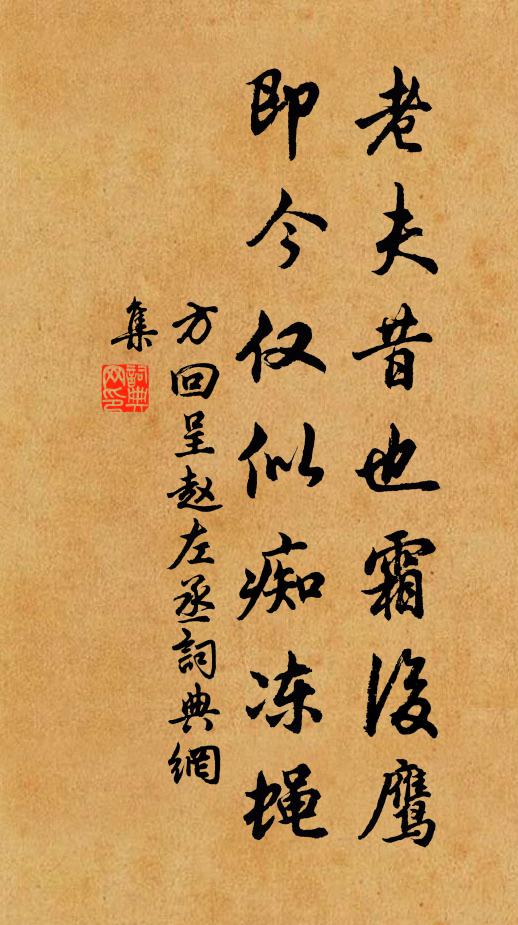 老夫昔也霜後鹰
即今仅似痴冻蝇
方回呈赵左丞詞典網
集
詞典
网印